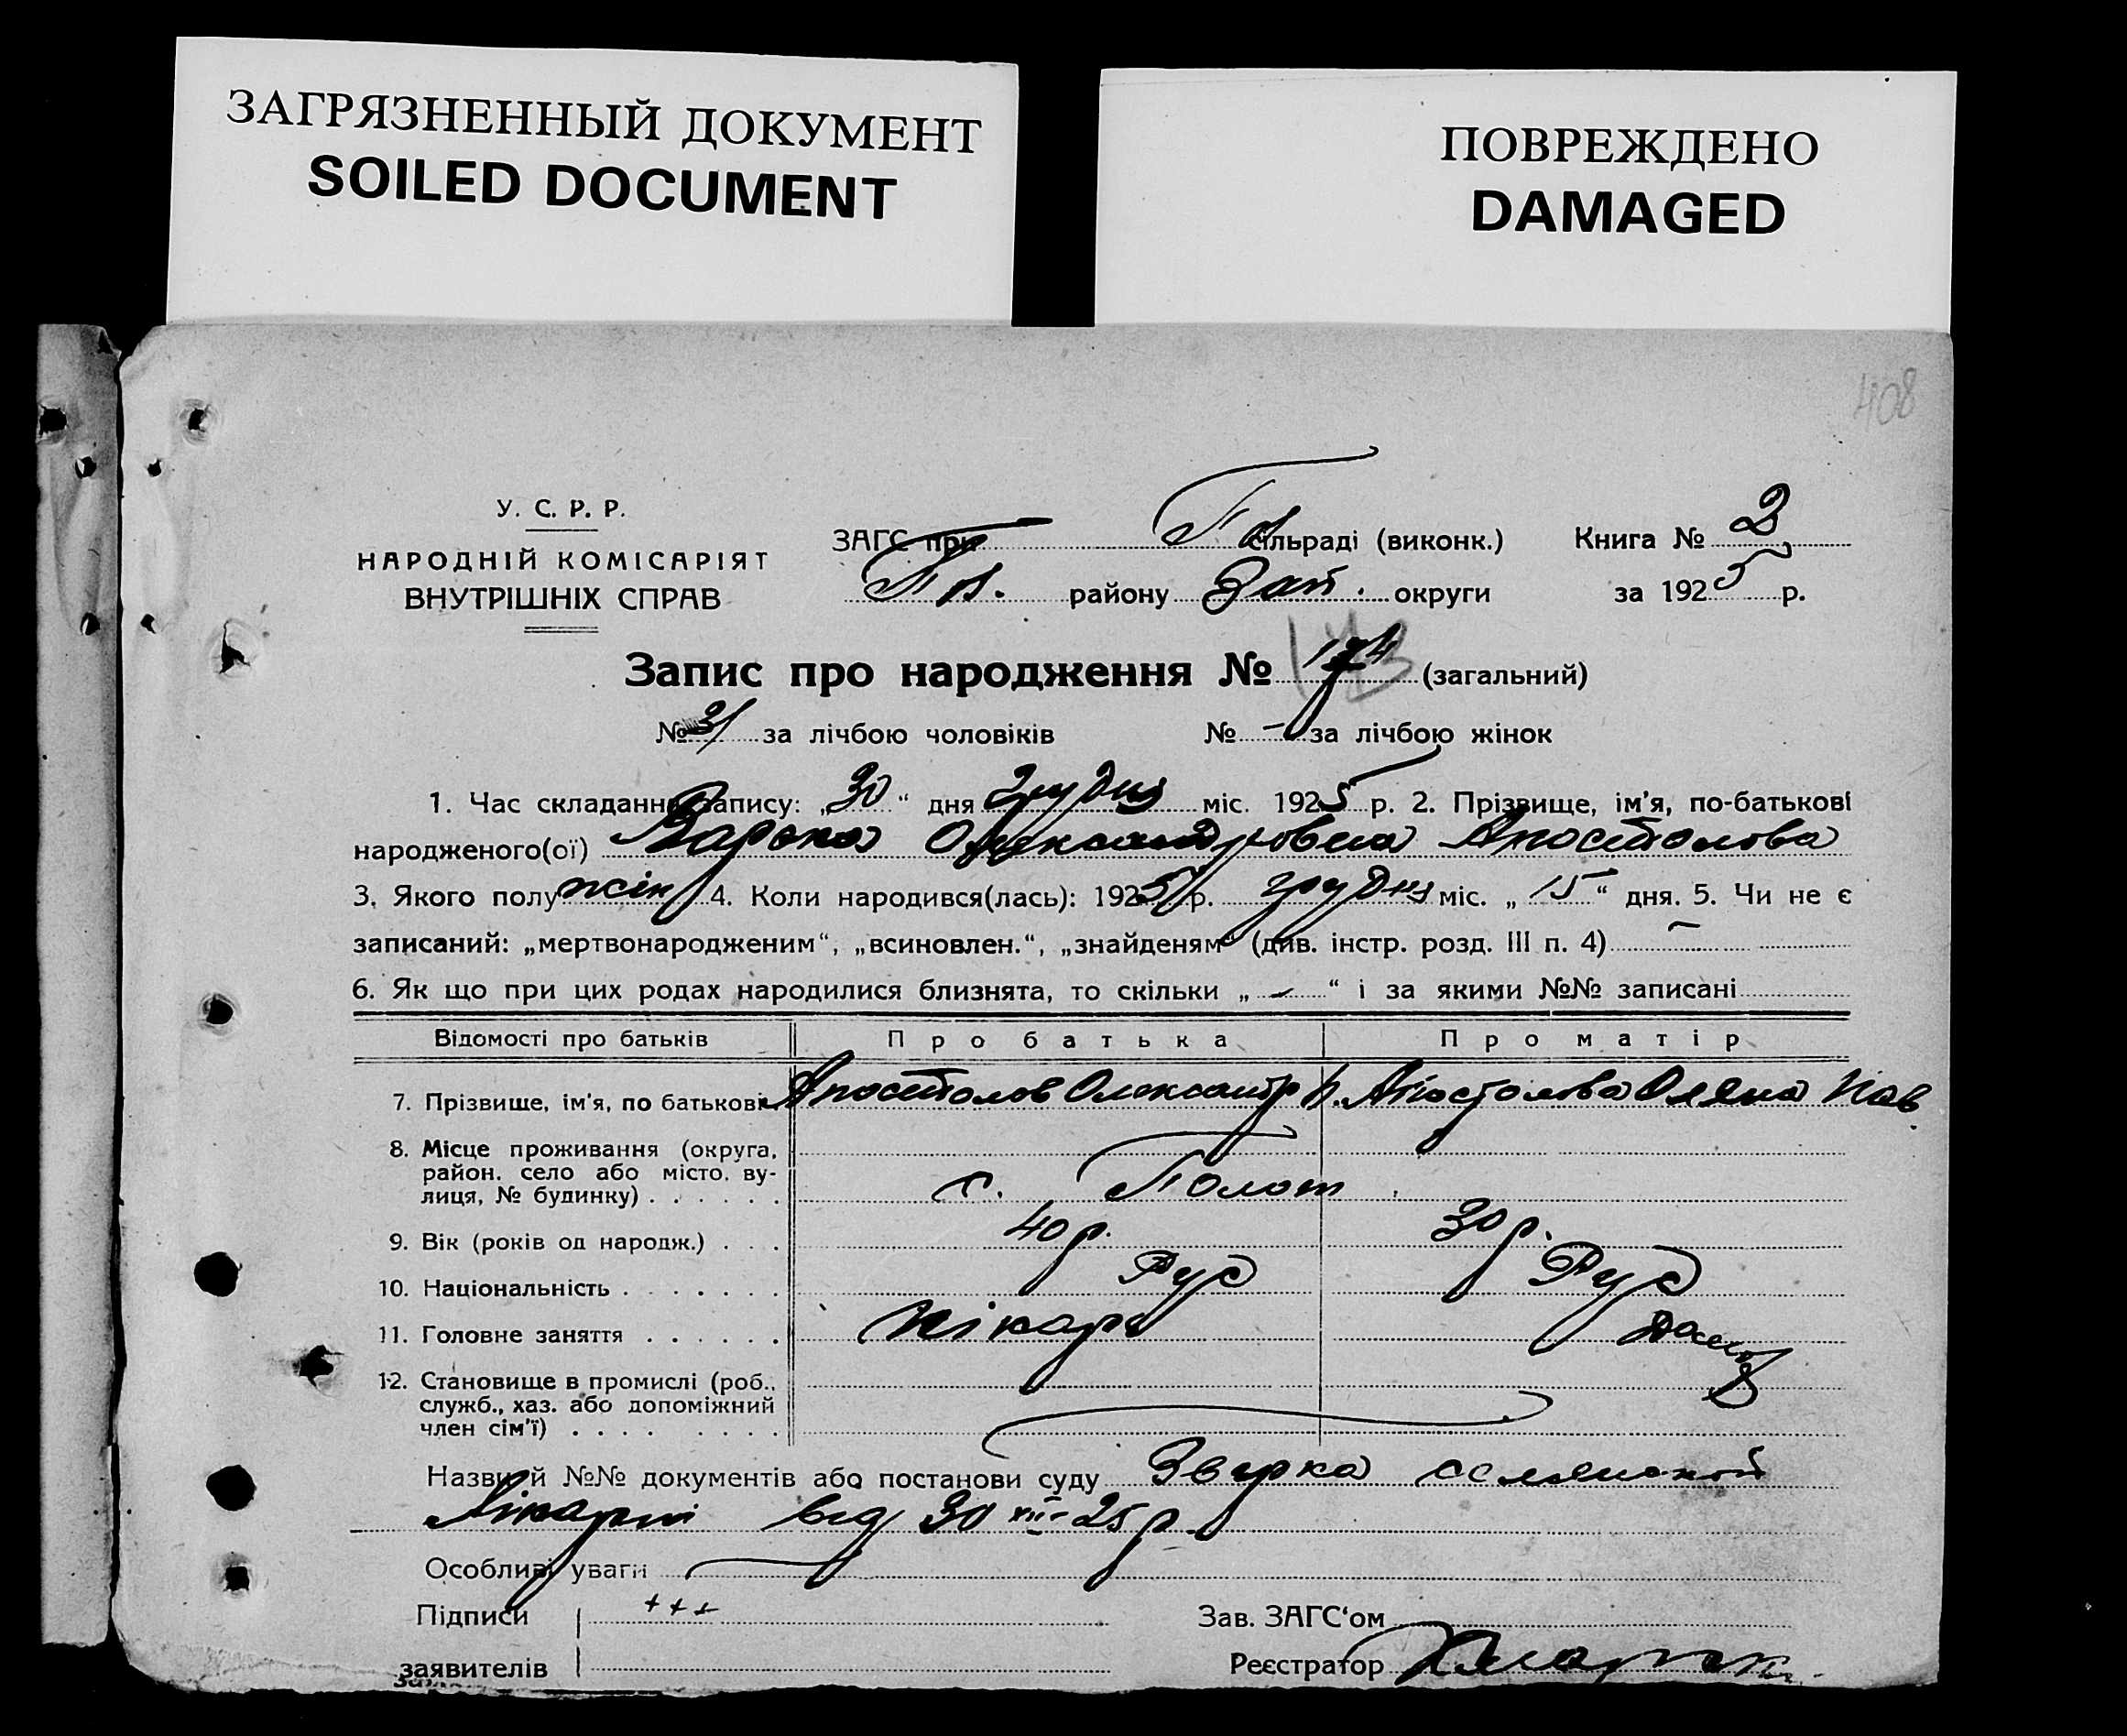 ЗАГРЯЗНЕННЫЙ ДОКУМЕНТ
SOILED DOCUMENT
ПОВРЕЖДЕНО
DAMAGED
408
У. С. Р. Р.
НАРОДНІЙ КОМІСАРІЯТ
ВНУТРІШНІХ СПРАВ
ЗАГС при сільраді (виконк.) Книга № 2
району Зап. округи за 1925 р.
Запис про народження № 174 (загальний)
№ 31 за лічбою чоловіків № - за лічбою жінок
1. Час складання запису: „30“ дня грудня міс. 1925 р. 2. Прізвище, ім'я, по-батькові
народженого(ої) Олександровна Апостолова
3. Якого полу жін 4. Коли народився(лась): 1925 р. грудня міс. „15“ дня. 5. Чи не є
записаний: „мертвонародженим“, „всиновлен.“, „знайденям“ (див. інстр. розд. III п. 4)
6. Як що при цих родах народилися близнята, то скільки „-“ і за якими №№ записані
Відомості про батьків Про батька Про матір
7. Прізвище, ім'я, по батькові Апостолов Олександр П. Апостолова Оляна Пав
8. Місце проживання (округа,
район, село або місто, ву-
лиця, № будинку) . . . . . . с. Полог
9. Вік (років од народж.) . . . 40 р. 30 р.
10. Національність . . . . . . . Рус Рус
11. Головне заняття . . . . . .
12. Становище в промислі (роб.,
служб., хаз. або допоміжний
член сім'ї) . . . . . . . .
Назви й №№ документів або постанови суду
лікарні від 30 XII-25 р.
Особливі уваги
Підписи +++ Зав. ЗАГС'ом
заявителів Реєстратор